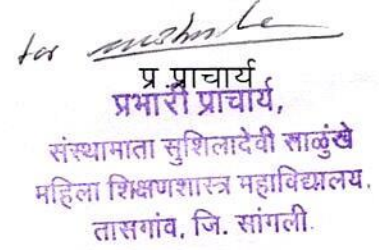 for
प्र प्राचार्य
प्रभारी प्राचार्य,
संस्थामाता सुशिलादेवी साळुंखे
महिला शिक्षणशास्त्र महाविद्यालय,
तासगांव, जि. सांगली.